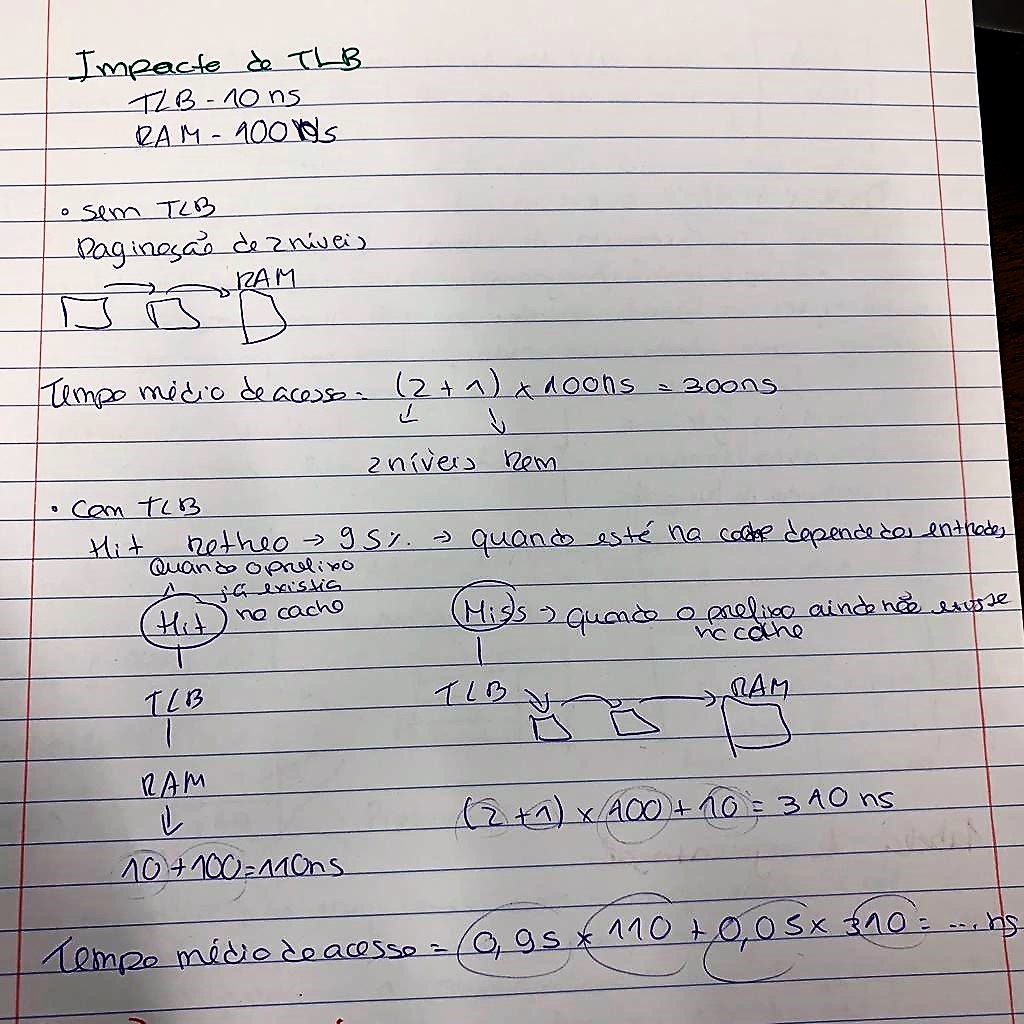 Impacto do TLB
TLB - 10 ns
RAM - 100 ns
• sem TLB
Paginação de 2 níveis
RAM
Tempo médio de acesso = (2 + 1) × 100ns = 300ns
2 níveis Ram
• Com TLB
Hit → 95% → quando está na cache depende das entradas
Quando o prefixo
já existia
na cache
Hit
Miss → quando o prefixo ainda não existe
na cache
TLB
TLB
RAM
RAM
(2 + 1) × 100 + 10 = 310 ns
10 + 100 = 110ns
Tempo médio do acesso = 0,95 × 110 + 0,05 × 310 = ... ns